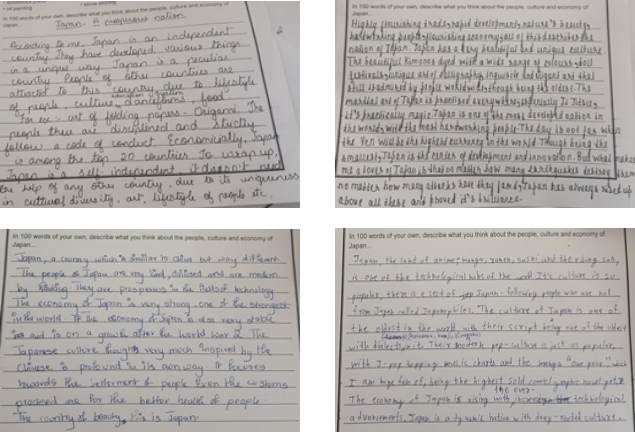 oil painting
In 100 words of your own, describe what you think about the people, culture and economy of Japan...
Japan: A prosperous nation
According to me, Japan is an independent
country. They have developed various things
in a unique way. Japan is a peculiar
country. People of other countries are
attracted to this country due to lifestyle
of people, culture, danceforms, food
education system
For ex:- art of folding papers - Origami. The
people there are disciplined and strictly
follow a code of conduct. Economically, Japan
is among the top 20 countries. To wrap up,
Japan is a self independent it doesn't need
the help of any other country, due to its uniqueness
in cultural diversity, art, lifestyle of people etc.
In 100 words of your own, describe what you think about the people, culture and economy of
Japan...
Highly flourishing trade, rapid development, nature's beauty,
hardworking people, flourishing economy, all of this describes the
nation of Japan. Japan has a very beautiful and unique culture.
The beautiful Kimonos dyed with a wide range of colours, doll
festivals, unique art of calligraphy,
still admired by people worldwide, though being the oldest. The
martial art of Japan is practised everywhere, especially Ju Jitsu,
it's practically magic. Japan is one of the most developed nation in
the world, with the most hardworking people. The day is not far when
the Yen will be the highest currency in the world. Though being the
smallest, Japan is the center of development and innovation. But what makes
me a lover of Japan is that no matter how many earthquakes destroy them
no matter how many attacks have they faced, Japan has always rised up
above all these and proved it's brilliance.
In 100 words of your own, describe what you think about the people, culture and economy of
Japan...
Japan, a country which is similar to China but way different.
The people of Japan are very kind, civilised and are modern
by thinking. They are prosperous in the fields of technology.
The economy of Japan is very strong, one of the strongest
in the world. The economy of Japan is also very stable
and is on a growth after the World War 2. The
Japanese culture though very much inspired by the
Chinese is profound in its own way. It focuses
towards the betterment of people. Even the customs
practised are for the better health of people.
The country of beauty, this is Japan.
In 100 words of your own, describe what you think about the people, culture and economy of
Japan...
Japan, the land of anime, manga, ramen, sushi and the rising sun,
is one of the technological hubs of the world. It's culture is so
popular, there is a cult of pop Japan - following people who are not
from Japan called Japanophiles. The culture of Japan is one of
the oldest in the world with their script being one of the oldest
with dialects in it. Their modern pop-culture is just as popular,
with J-pop topping music charts and the manga "one piece" which
I am huge fan of, being the highest sold comic/graphic novel yet.
the ever-
The economy of Japan is rising with increasing technological
advancements. Japan is a dynamic nation with deep-rooted culture.